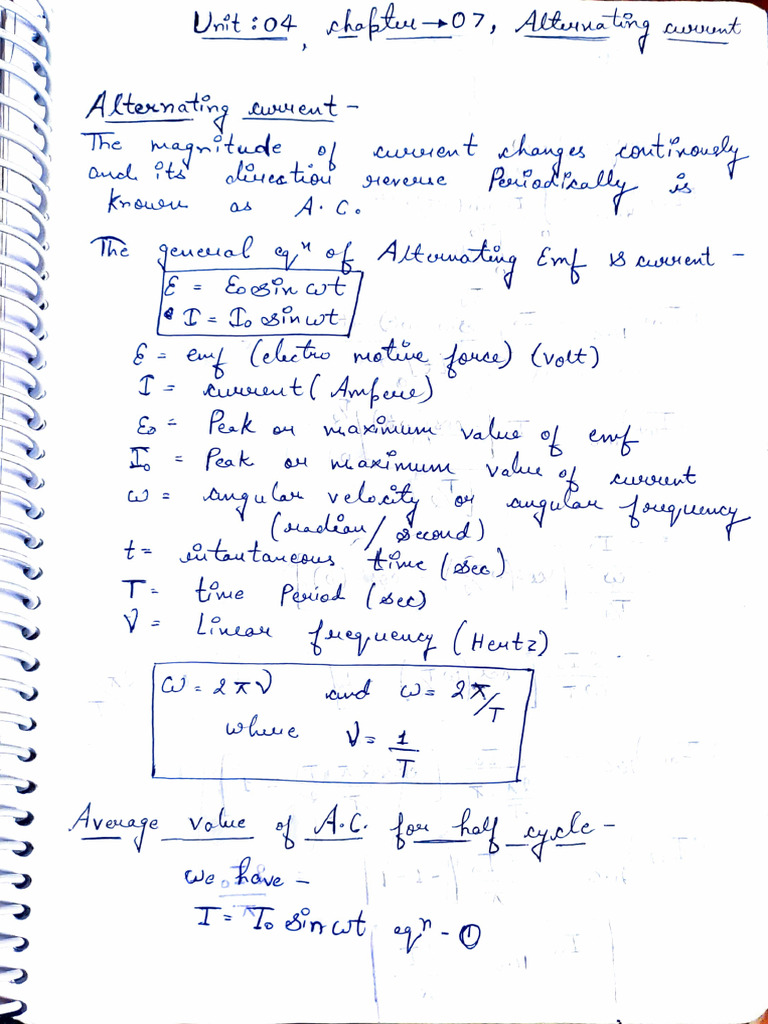 Unit : 04, chapter → 07, Alternating current
Alternating current -
The magnitude of current changes continously
and its direction reverse Periodically is
known as A.C.
The general eqⁿ of Alternating Emf is current -
Ɛ = Ɛ₀ sin ωt
I = I₀ sin ωt
Ɛ = emf (electro motive force) (volt)
I = current (Ampere)
Ɛ₀ = Peak or maximum value of emf
I₀ = Peak or maximum value of current
ω = angular velocity or angular frequency
(radian/second)
t = intantaneous time (sec)
T = time Period (sec)
ν = Linear frequency (Hertz)
ω = 2πν and ω = 2π/T
where ν = 1/T
Average value of A.C. for half cycle -
we have -
I = I₀ sin ωt eqⁿ - ①